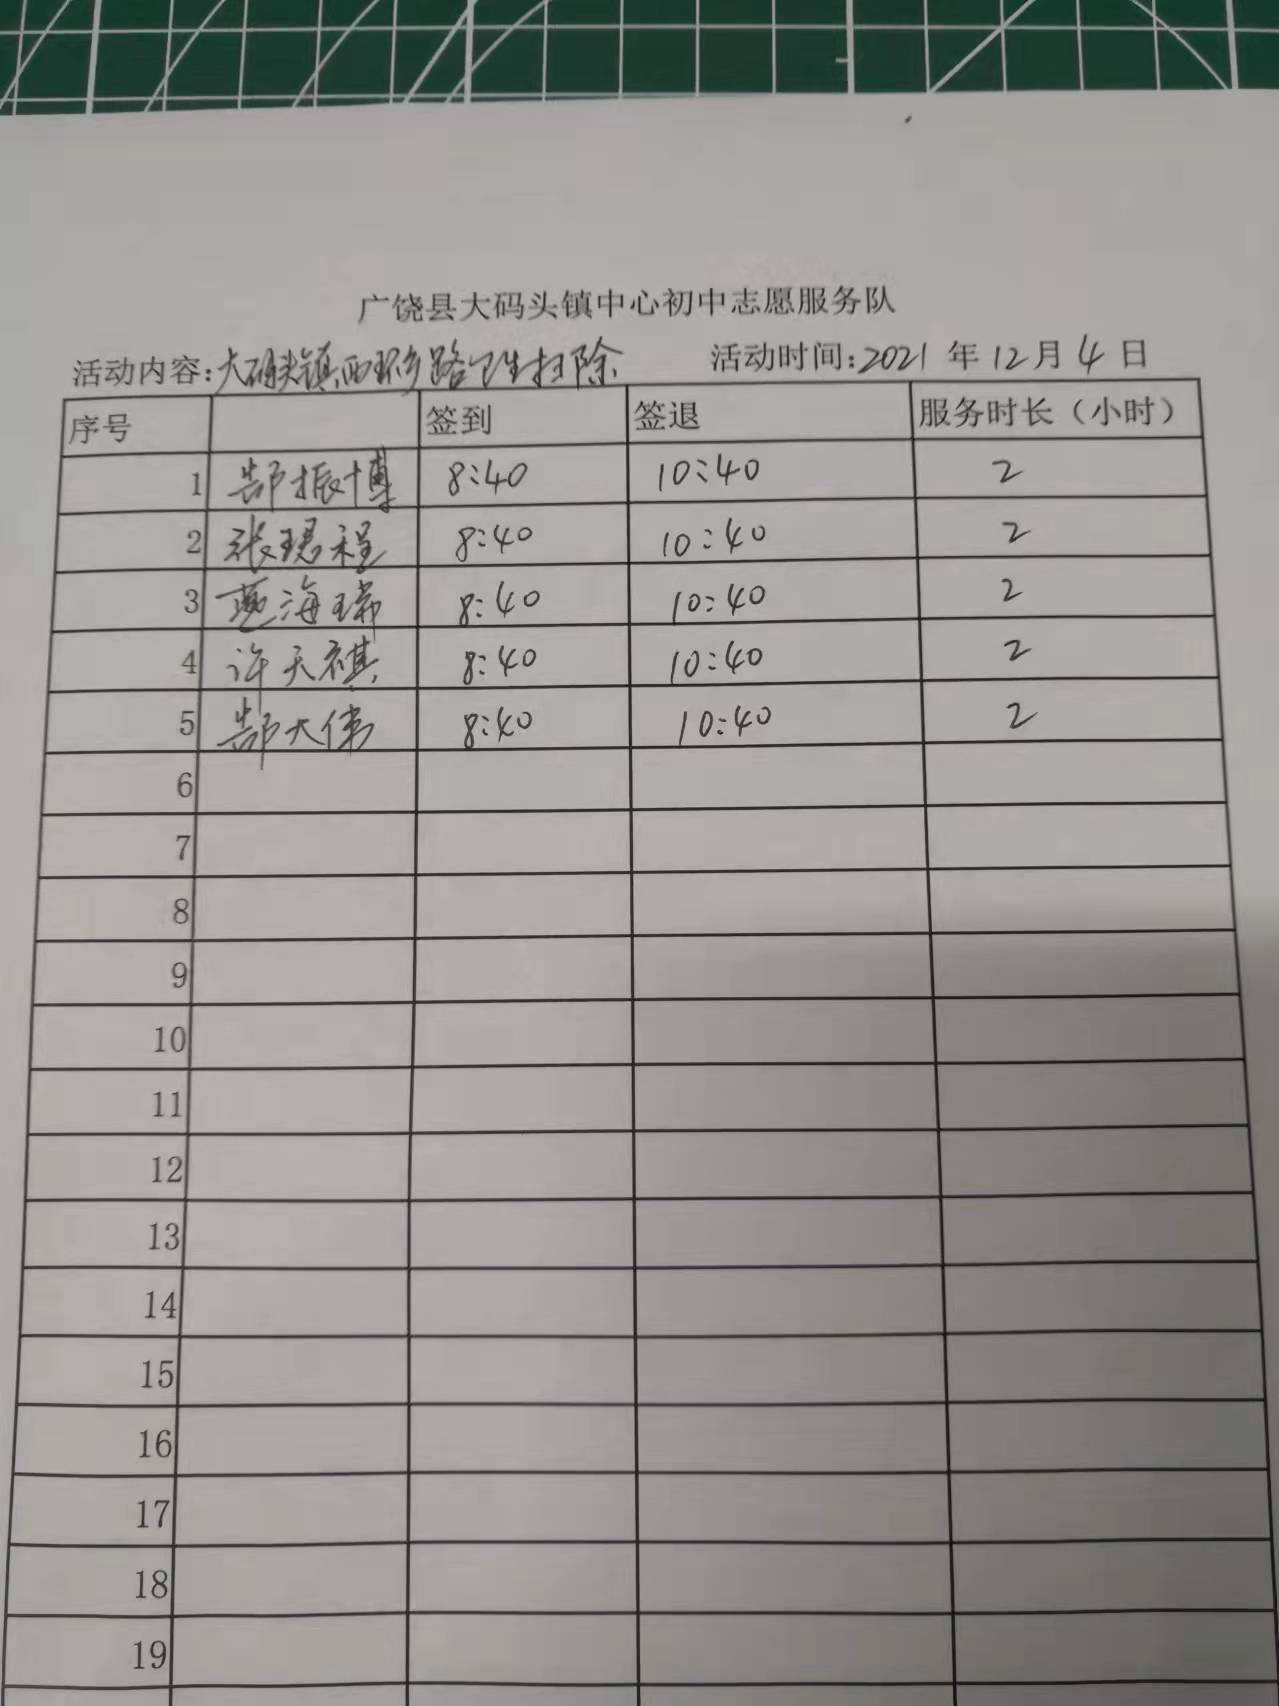 广饶县大码头镇中心初中志愿服务队
活动内容:大码头镇西环路卫生扫除 活动时间:2021 年 12 月 4 日
序号 签到 签退 服务时长（小时）
1 郜振博 8:40 10:40 2
2 张珺程 8:40 10:40 2
3 海瑞 8:40 10:40 2
4 许天祺 8:40 10:40 2
5 郜大伟 8:40 10:40 2
6
7
8
9
10
11
12
13
14
15
16
17
18
19